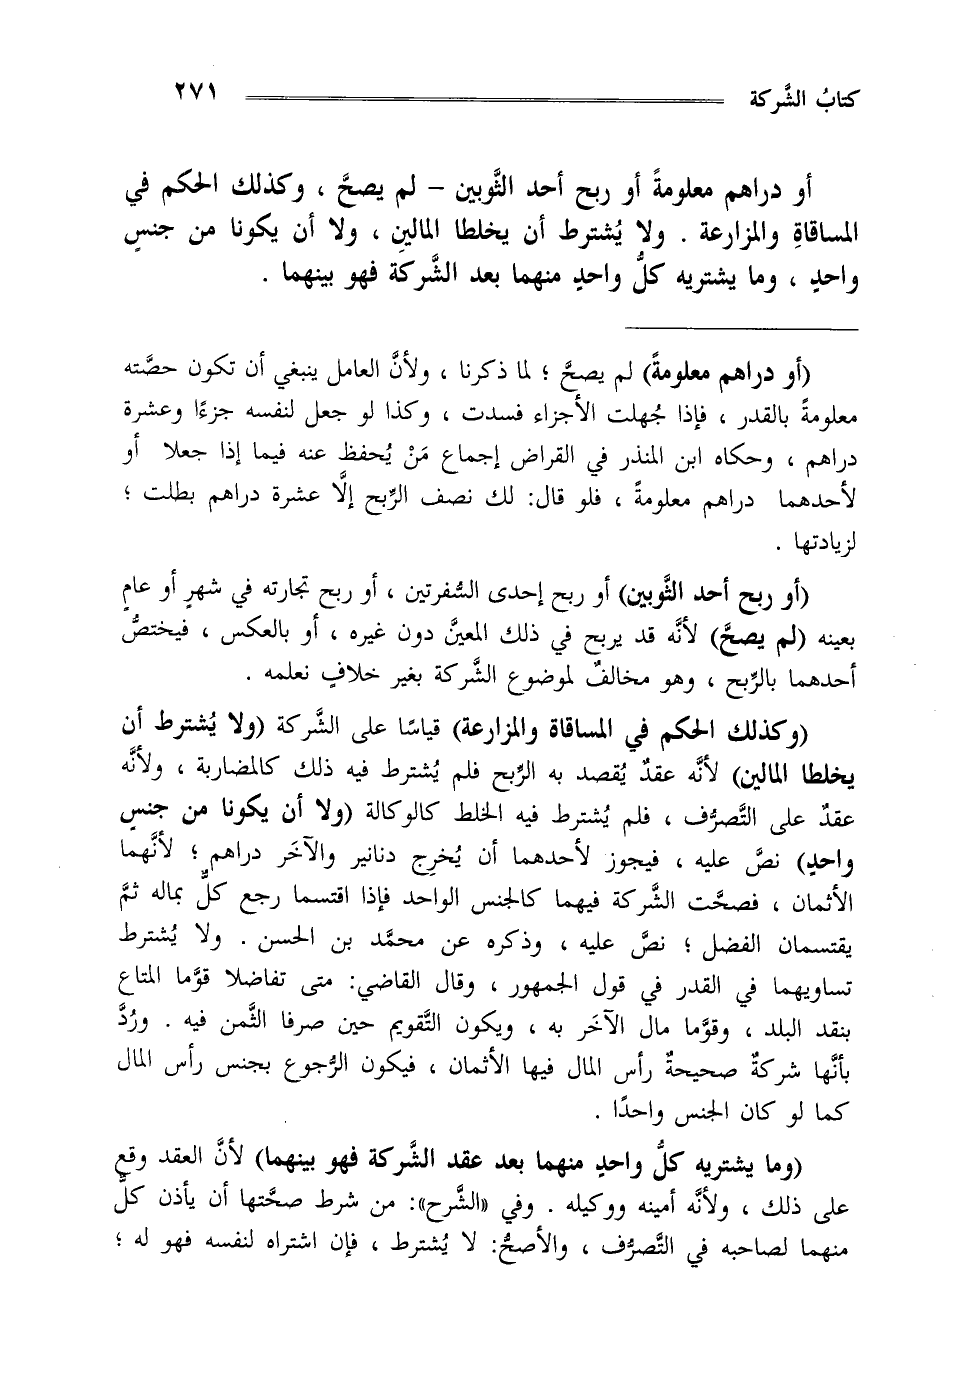 كتابُ الشَّركة ٢٧١
أو دراهم معلومةً أو ربح أحد الثَّوبين – لم يصحَّ ، وكذلك الحكم في
المساقاةِ والمزارعة . ولا يُشترط أن يخلطا المالينِ ، ولا أن يكونا من جنسٍ
واحدٍ ، وما يشتريه كلُّ واحدٍ منهما بعد الشَّركة فهو بينهما .
(أو دراهم معلومةً) لم يصحَّ ؛ لما ذكرنا ، ولأنَّ العامل ينبغي أن تكون حصَّته
معلومةً بالقدر ، فإذا جُهلت الأجزاء فسدت ، وكذا لو جعل لنفسه جزءًا وعشرة
دراهم ، وحكاه ابن المنذر في القراض إجماع مَنْ يُحفظ عنه فيما إذا جعلا أو
لأحدهما دراهم معلومةً ، فلو قال: لك نصف الرِّبح إلَّا عشرة دراهم بطلت ؛
لزيادتها .
(أو ربح أحد الثَّوبين) أو ربح إحدى السُّفرتين ، أو ربح تجارته في شهرٍ أو عامٍ
بعينه (لم يصحَّ) لأنَّه قد يربح في ذلك المعيَّن دون غيره ، أو بالعكس ، فيختصُّ
أحدهما بالرِّبح ، وهو مخالفٌ لموضوع الشَّركة بغير خلافٍ نعلمه .
(وكذلك الحكم في المساقاة والمزارعة) قياسًا على الشَّركة (ولا يُشترط أن
يخلطا المالين) لأنَّه عقدٌ يُقصد به الربَّح فلم يُشترط فيه ذلك كالمضاربة ، ولأنَّه
عقدٌ على التَّصرُّف ، فلم يُشترط فيه الخلط كالوكالة (ولا أن يكونا من جنسٍ
واحدٍ) نصَّ عليه ، فيجوز لأحدهما أن يُخرِج دنانير والآخَر دراهم ؛ لأنَّهما
الأثمان ، فصحَّت الشَّركة فيهما كالجنس الواحد فإذا اقتسما رجع كلٌّ بماله ثمَّ
يقتسمان الفضل ؛ نصَّ عليه ، وذكره عن محمَّد بن الحسن . ولا يُشترط
تساويهما في القدر في قول الجمهور ، وقال القاضي: متى تفاضلا قوَّما المتاع
بنقد البلد ، وقوَّما مال الآخَر به ، ويكون التَّقويم حين صرفا الثَّمن فيه . ورُدَّ
بأنَّها شركةٌ صحيحةٌ رأس المال فيها الأثمان ، فيكون الرُّجوع بجنس رأس المال
كما لو كان الجنس واحدًا .
(وما يشتريه كلُّ واحدٍ منهما بعد عقد الشَّركة فهو بينهما) لأنَّ العقد وقع
على ذلك ، ولأنَّه أمينه ووكيله . وفي «الشَّرح»: من شرط صحَّتها أن يأذن كلٌّ
منهما لصاحبه في التَّصرُّف ، والأصحُّ: لا يُشترط ، فإن اشتراه لنفسه فهو له ؛